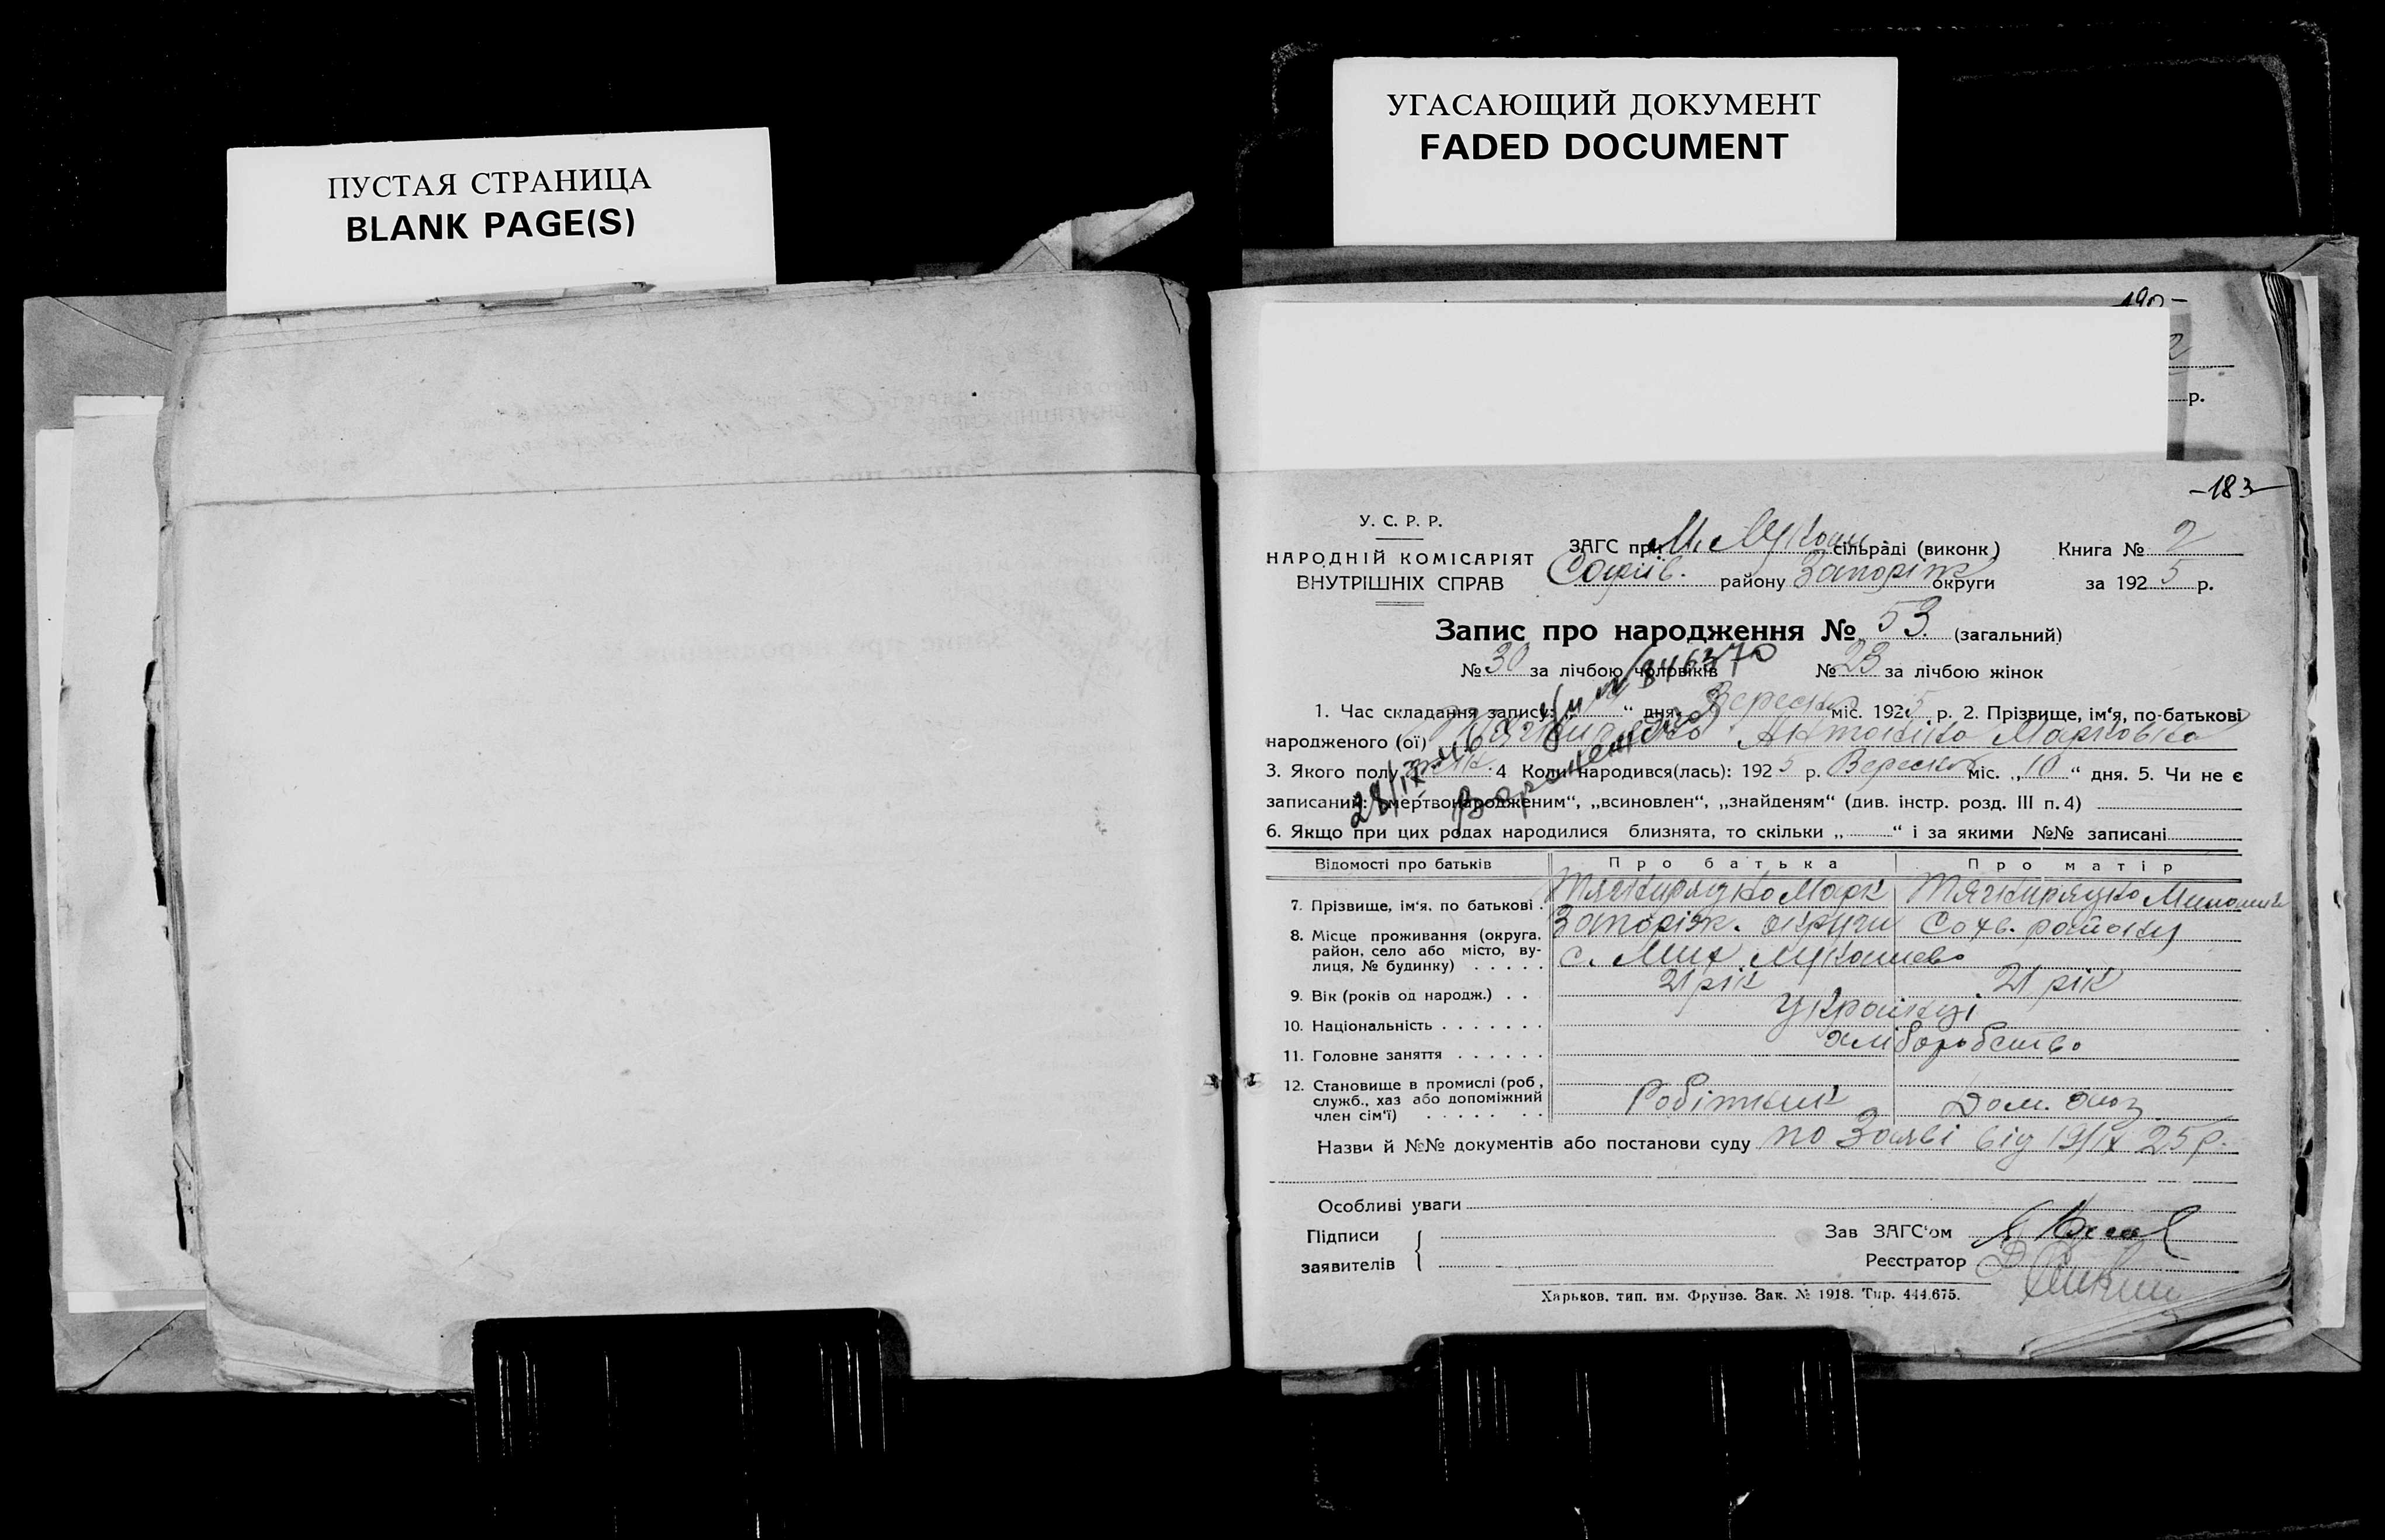 ПУСТАЯ СТРАНИЦА
BLANK PAGE(S)
УГАСАЮЩИЙ ДОКУМЕНТ
FADED DOCUMENT
190-
2
р.
-183-
У. С. Р. Р.
НАРОДНІЙ КОМІСАРІЯТ
ВНУТРІШНІХ СПРАВ
ЗАГС при М. Лукош. сільраді (виконк)
Софіїв. району Запоріж округи
Книга № 2
за 1925 р.
Запис про народження № 53 (загальний)
№ 30 за лічбою чоловіків № 23 за лічбою жінок
1. Час складання запису: „ “ дня. Вересня міс. 1925 р. 2. Прізвище, ім‘я, по-батькові
народженого (ої) Антоніна Марковна
3. Якого полу жін. 4 Коли народився(лась): 1925 р. Вересня міс. „10“ дня. 5. Чи не є
записаний: „мертвонародженим“, „всиновлен“, „знайденям“ (див. інстр. розд. III п. 4)
6. Якщо при цих родах народилися близнята, то скільки „ “ і за якими №№ записані
28/IX
Відомості про батьків Про батька Про матір
7. Прізвище, ім‘я, по батькові . Тягнирядко Марк Тягнирядко
8. Місце проживання (округа, район, село або місто, ву-лиця, № будинку) . . . . . Запоріж. округи Соф. району
с. Мих Лукошево
9. Вік (років од народж.) . . 21 рік 21 рік
10. Національність . . . . . . . Українці
11. Головне заняття . . . . . . хліборобство
12. Становище в промислі (роб, служб., хаз або допоміжний член сім‘ї) . . . . . . . Робітник Дом. хоз.
Назви й №№ документів або постанови суду по Заяві від 19/IX 25 р.
Особливі уваги
Підписи
заявителів
Зав ЗАГС‘ом
Реєстратор
Харьков, тип. им. Фрунзе. Зак. № 1918. Тир. 444.675.